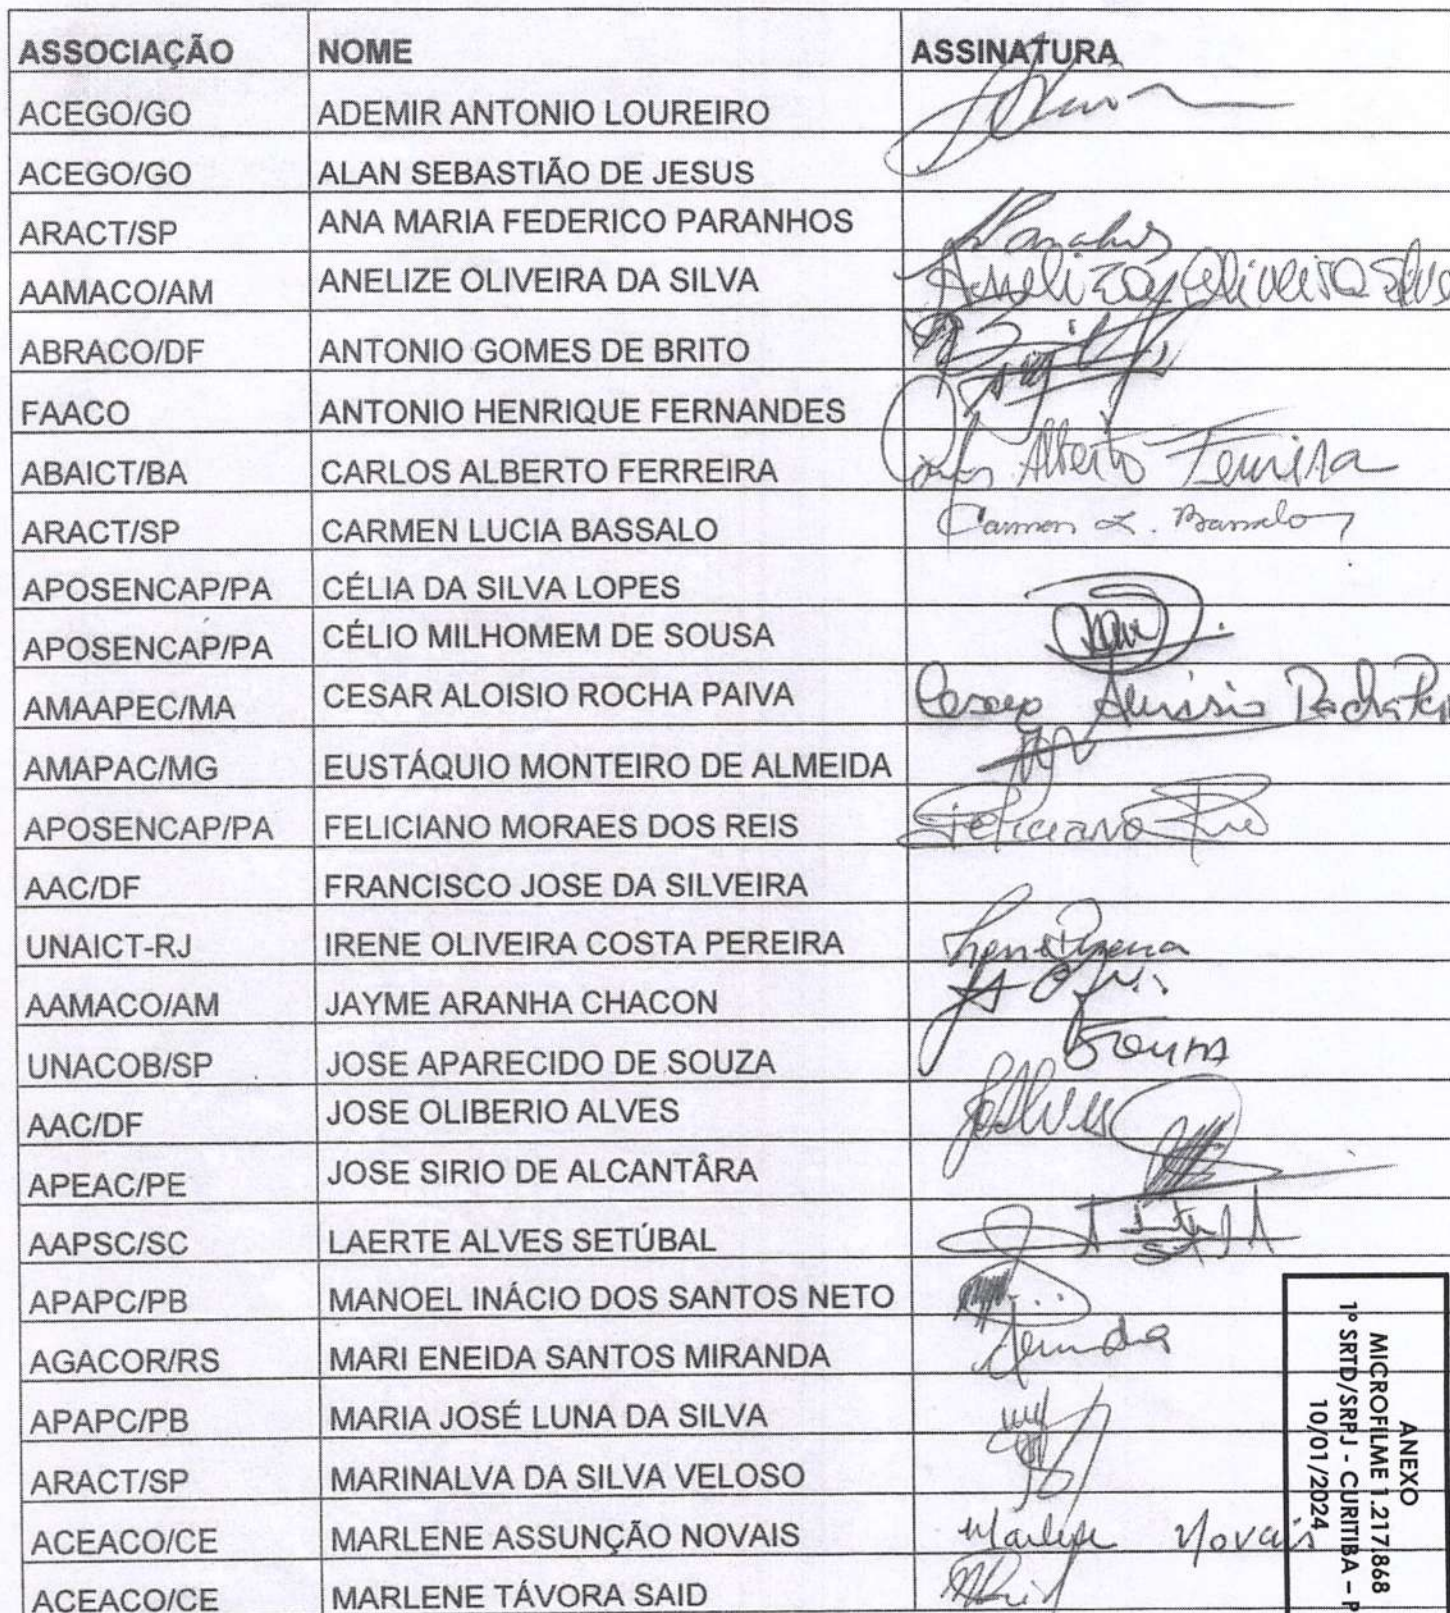 ASSOCIAÇÃO NOME ASSINATURA
ACEGO/GO ADEMIR ANTONIO LOUREIRO
ACEGO/GO ALAN SEBASTIÃO DE JESUS
ARACT/SP ANA MARIA FEDERICO PARANHOS
AAMACO/AM ANELIZE OLIVEIRA DA SILVA Anelize Oliveira Silva
ABRACO/DF ANTONIO GOMES DE BRITO
FAACO ANTONIO HENRIQUE FERNANDES
ABAICT/BA CARLOS ALBERTO FERREIRA Carlos Alberto Ferreira
ARACT/SP CARMEN LUCIA BASSALO Carmen L. Bassalo
APOSENCAP/PA CÉLIA DA SILVA LOPES
APOSENCAP/PA CÉLIO MILHOMEM DE SOUSA
AMAAPEC/MA CESAR ALOISIO ROCHA PAIVA
AMAPAC/MG EUSTÁQUIO MONTEIRO DE ALMEIDA
APOSENCAP/PA FELICIANO MORAES DOS REIS Feliciano
AAC/DF FRANCISCO JOSE DA SILVEIRA
UNAICT-RJ IRENE OLIVEIRA COSTA PEREIRA Irene Pereira
AAMACO/AM JAYME ARANHA CHACON
UNACOB/SP JOSE APARECIDO DE SOUZA Souza
AAC/DF JOSE OLIBERIO ALVES
APEAC/PE JOSE SIRIO DE ALCANTÂRA
AAPSC/SC LAERTE ALVES SETÚBAL
APAPC/PB MANOEL INÁCIO DOS SANTOS NETO
AGACOR/RS MARI ENEIDA SANTOS MIRANDA
APAPC/PB MARIA JOSÉ LUNA DA SILVA
ARACT/SP MARINALVA DA SILVA VELOSO
ACEACO/CE MARLENE ASSUNÇÃO NOVAIS Marlene Novais
ACEACO/CE MARLENE TÁVORA SAID
ANEXO
MICROFILME 1.217.868
1º SRTD/SRPJ - CURITIBA – P
10/01/2024